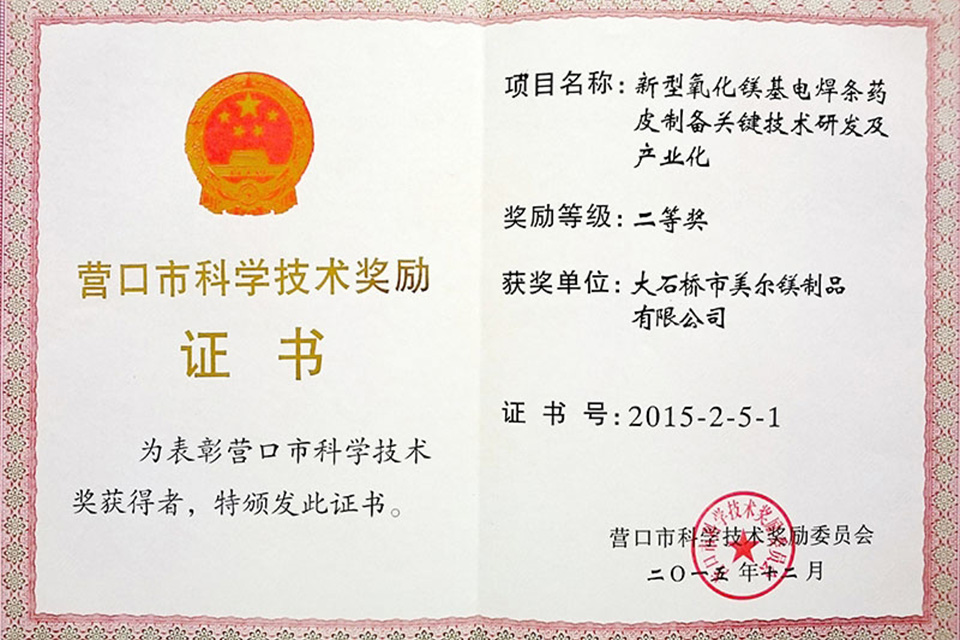 营口市科学技术奖励
证书
为表彰营口市科学技术
奖获得者，特颁发此证书。
项目名称：新型氧化镁基电焊条药
皮制备关键技术研发及
产业化
奖励等级：二等奖
获奖单位：大石桥市美尔镁制品
有限公司
证书号：2015-2-5-1
营口市科学技术奖励委员会
二〇一五年十二月
营口市科学技术奖励委员会